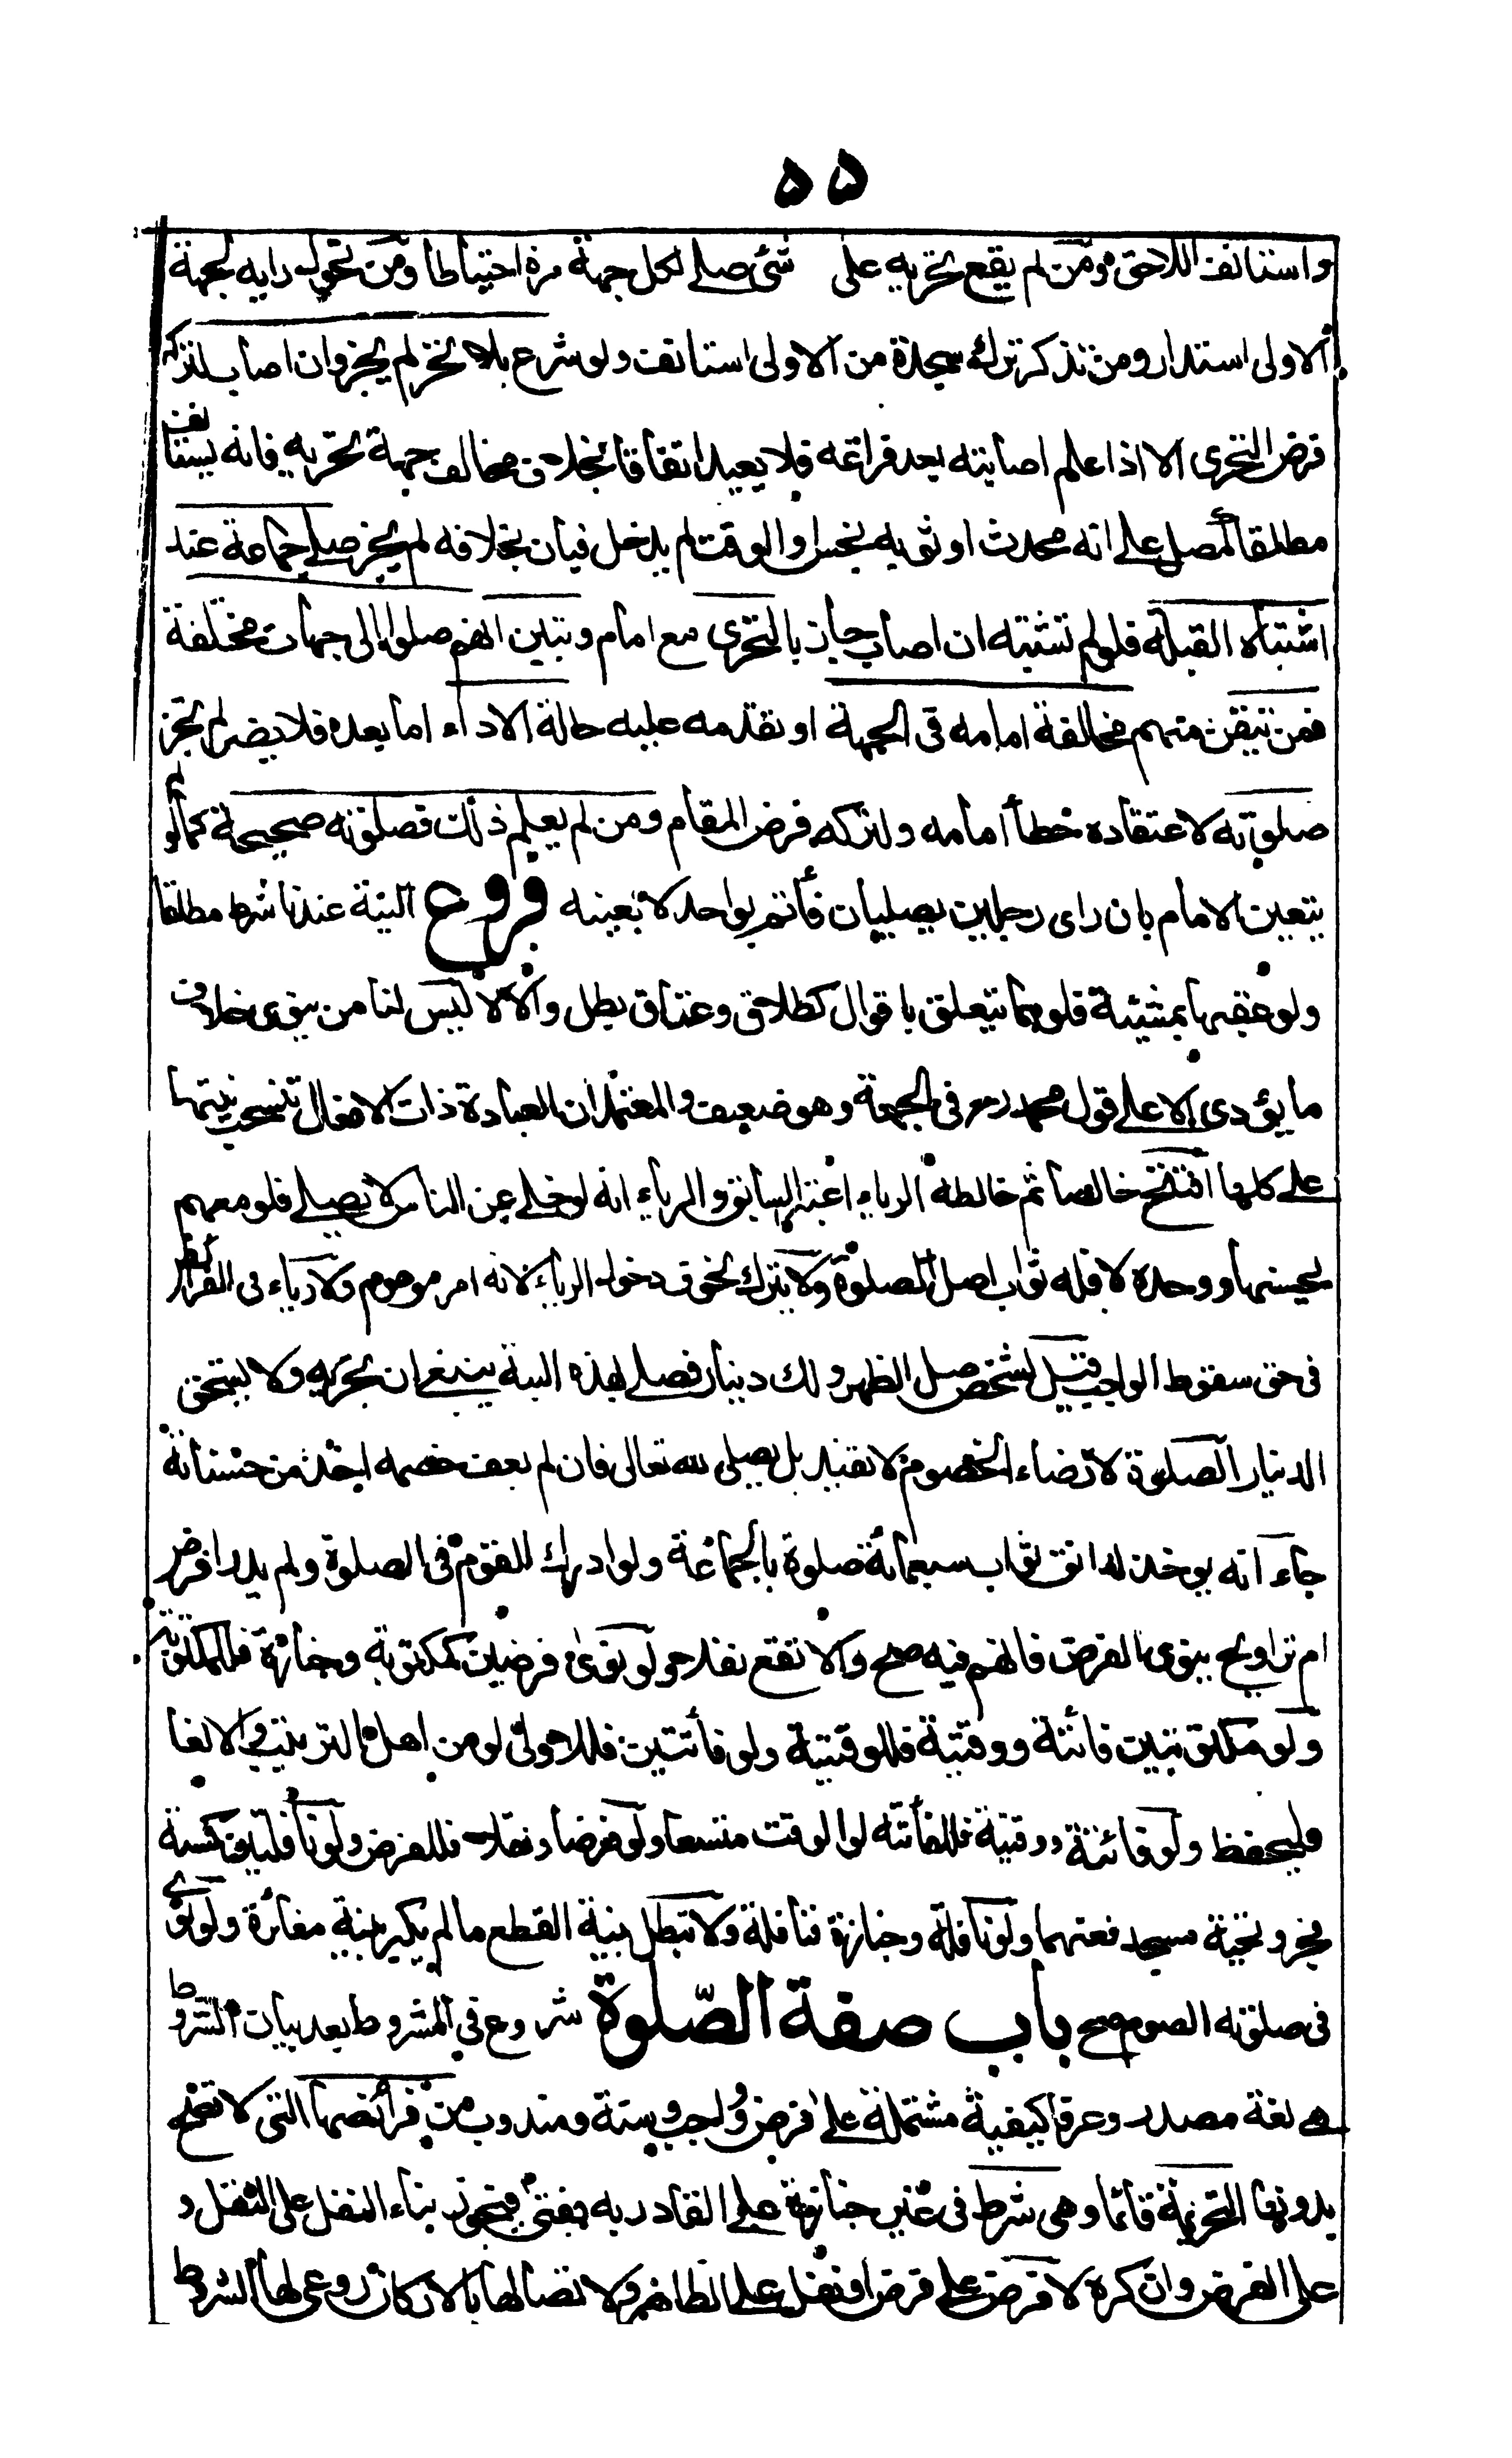 ۵۵
واستانف اللاحق ومن لم يقع تحريه على شئ صلے لكل جهة مرة احتياطا ومن تحول رايه لجهة
الاولى استدار ومن تذكر ترك سجدة من الاولى استانف ولو شرع بلا تحر لم يجز وان اصاب لتركه
فرض التحرى الا اذا علم اصابته بعد فراغه فلا يعيد اتفاقا بخلاف مخالف جهة تحريه فانه يستانف
مطلقا كمصل علے انه محدث او ثوبه نجس او الوقت لم يدخل فبان بخلافه لم يجز صلے جماعة عند
اشتباه القبلة فلو لم تشتبه ان اصاب جاز بالتحرى مع امام وتبين انهم صلوا الى جهات مختلفة
فمن تيقن منهم مخالفة امامه فى الجهة او تقدمه عليه حالة الاداء اما بعده فلا يضر لم تجز
صلوته لاعتقاده خطأ امامه ولتركه فرض المقام ومن لم يعلم ذلك فصلوته صحيحة كما لو لم
يتعين الامام بان راى رجلين يصليان فأتم بواحد لا بعينه فروع النية عندنا شرط مطلقا
ولو عقبها بمشيئة فلو مما يتعلق باقوال كطلاق وعتاق بطل والا لا ليس لنا من ينوى خلاف
ما يؤدى الا علے قول محمد رح فى الجمعة وهو ضعيف والمعتمد ان العبادة ذات الافعال تنسحب نيتها
علے كلها افتتح خالصا ثم خالطه الرياء اعتبر السابق والرياء انه لو خلے عن الناس لا يصلے فلو معهم
يحسنها ووحده لا فله ثواب اصل الصلوة ولا يترك لخوف دخول الرياء لانه امر موهوم ولا رياء فى الفرائض
فى حق سقوط الواجب قيل لشخص صل الظهر ولك دينار فصلے بهذه النية ينبغے ان تجزيه ولا يستحق
الدينار الصلوة لارضاء الخصوم لا تفيد بل يصلى لله تعالى فان لم يعف خصمه اخذ من حسناته
جاء انه يوخذ لدانق ثواب سبعمائة صلوة بالجماعة ولو ادرك القوم فى الصلوة ولم يدر افرض
ام تراويح ينوى الفرض فان هم فيه صح والا تقع نفلا ولو نوى فرضين كمكتوبة وجنازة فللمكتوبة
ولو مكتوبتين فائتة ووقتية فللوقتية ولو فائتتين فللاولى لو من اهل الترتيب والا لغا
فليحفظ ولو فائتة ووقتية فللفائتة لو الوقت متسعا ولو فرضا ونفلا فللفرض ولو نافلتين كسنة
فجر وتحية مسجد فعنهما ولو نافلة وجنازة فنافلة ولا تبطل بنية القطع ما لم يكبر بنية مغائرة ولو نوے
فى صلوته الصوم صح باب صفة الصّلوة شروع فى المشروط بعد بيان الشروط
هے لغة مصدر وعرفا كيفية مشتملة علے فرض وواجب وسنة ومندوب من فرائضها التى لا تصح
بدونها التحريمة قائما وهى شرط فى غير جنازة علے القادر به يفتى فيجوز بناء النفل على النفل و
على الفرض وان كره لا فرض علے فرض او نفل علے الظاهر ولا تصالها بالاركان روعى لها الشروط